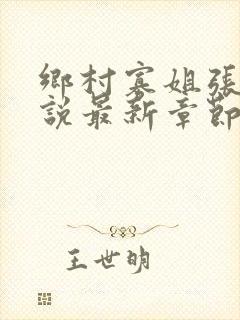 鄉村寡姐張
說最新章節
王世明